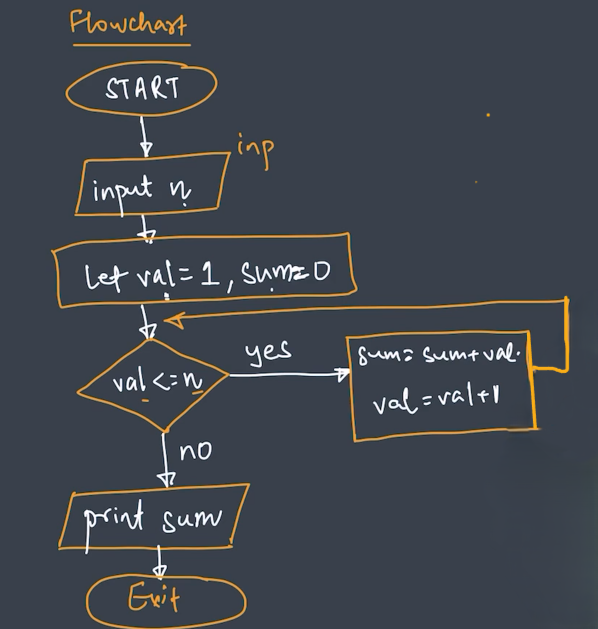 Flowchart
START
inp
input n
Let val = 1, sum = 0
yes
sum = sum + val.
val <= n
val = val + 1
no
print sum
Exit